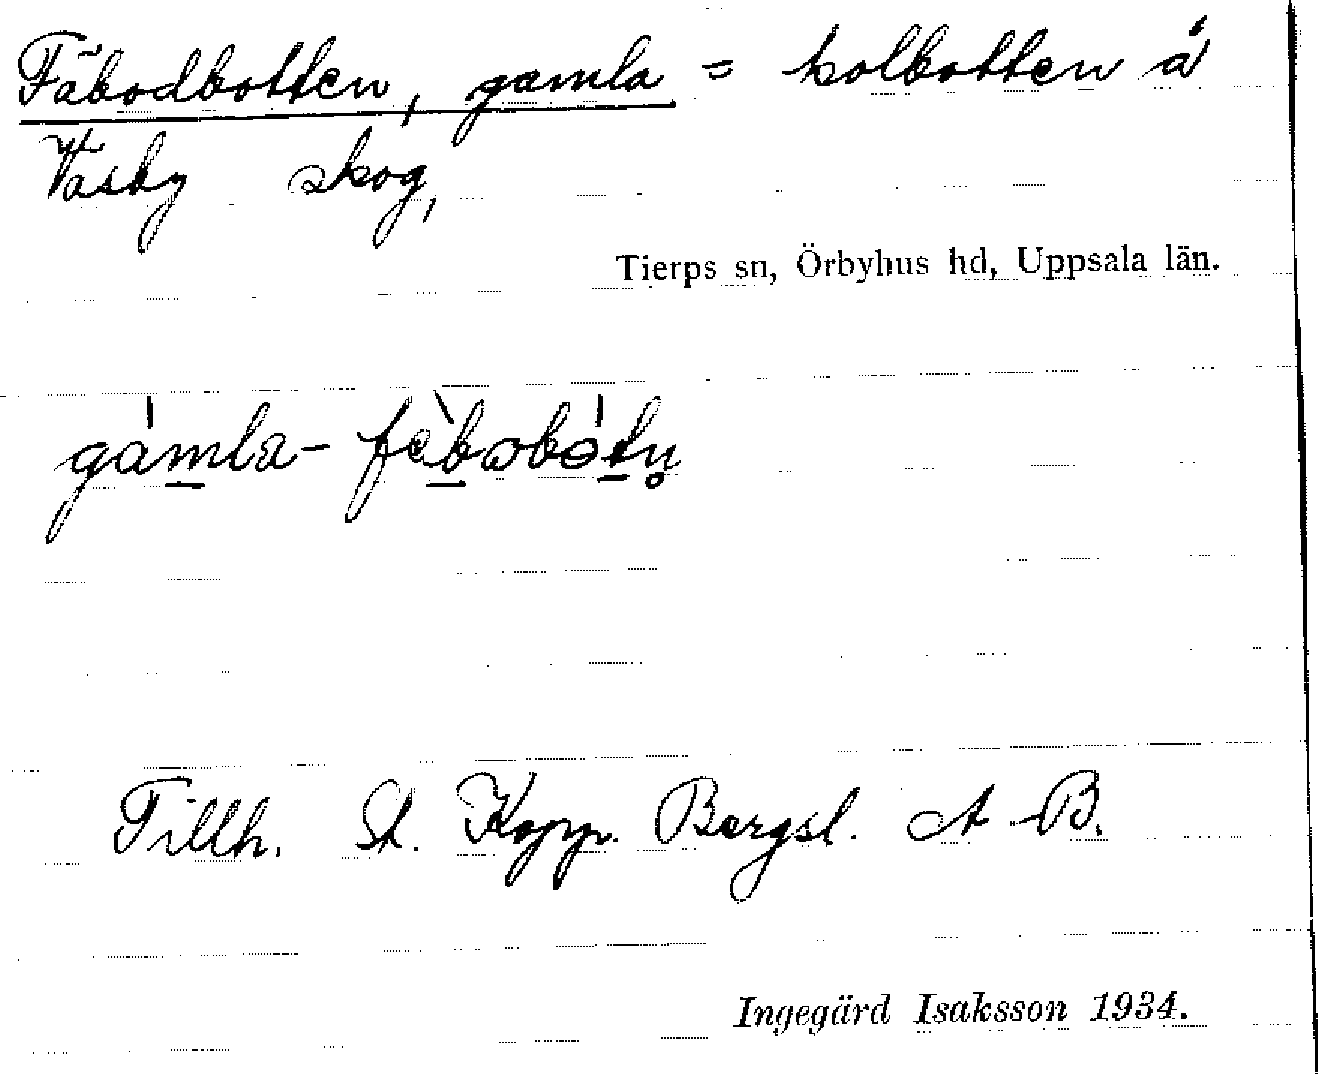 Fäbodbotten, gamla = kolbotten å
Vasby skog,
Tierps sn, Örbyhus hd, Uppsala län.
gámla- fὲbobótn̥
Tillh. St. Kopp. Bergsl. A-B.
Ingegärd Isaksson 1934.